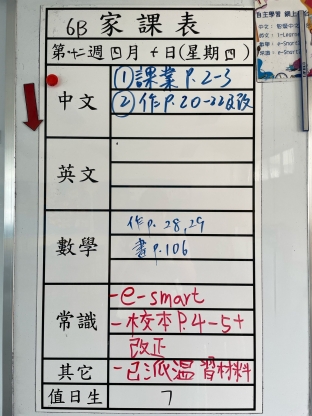 6B 家課表
第十二週四月十日(星期四)
中文
①課業 P.2-3
②作 P.20-22及改
英文
數學
作 P. 28,29
書 P.106
常識
-e-smart
-校本 P.4-5+
改正
其它
-已派溫習材料
值日生
7
自主學習 網上
中文：
e-Smart